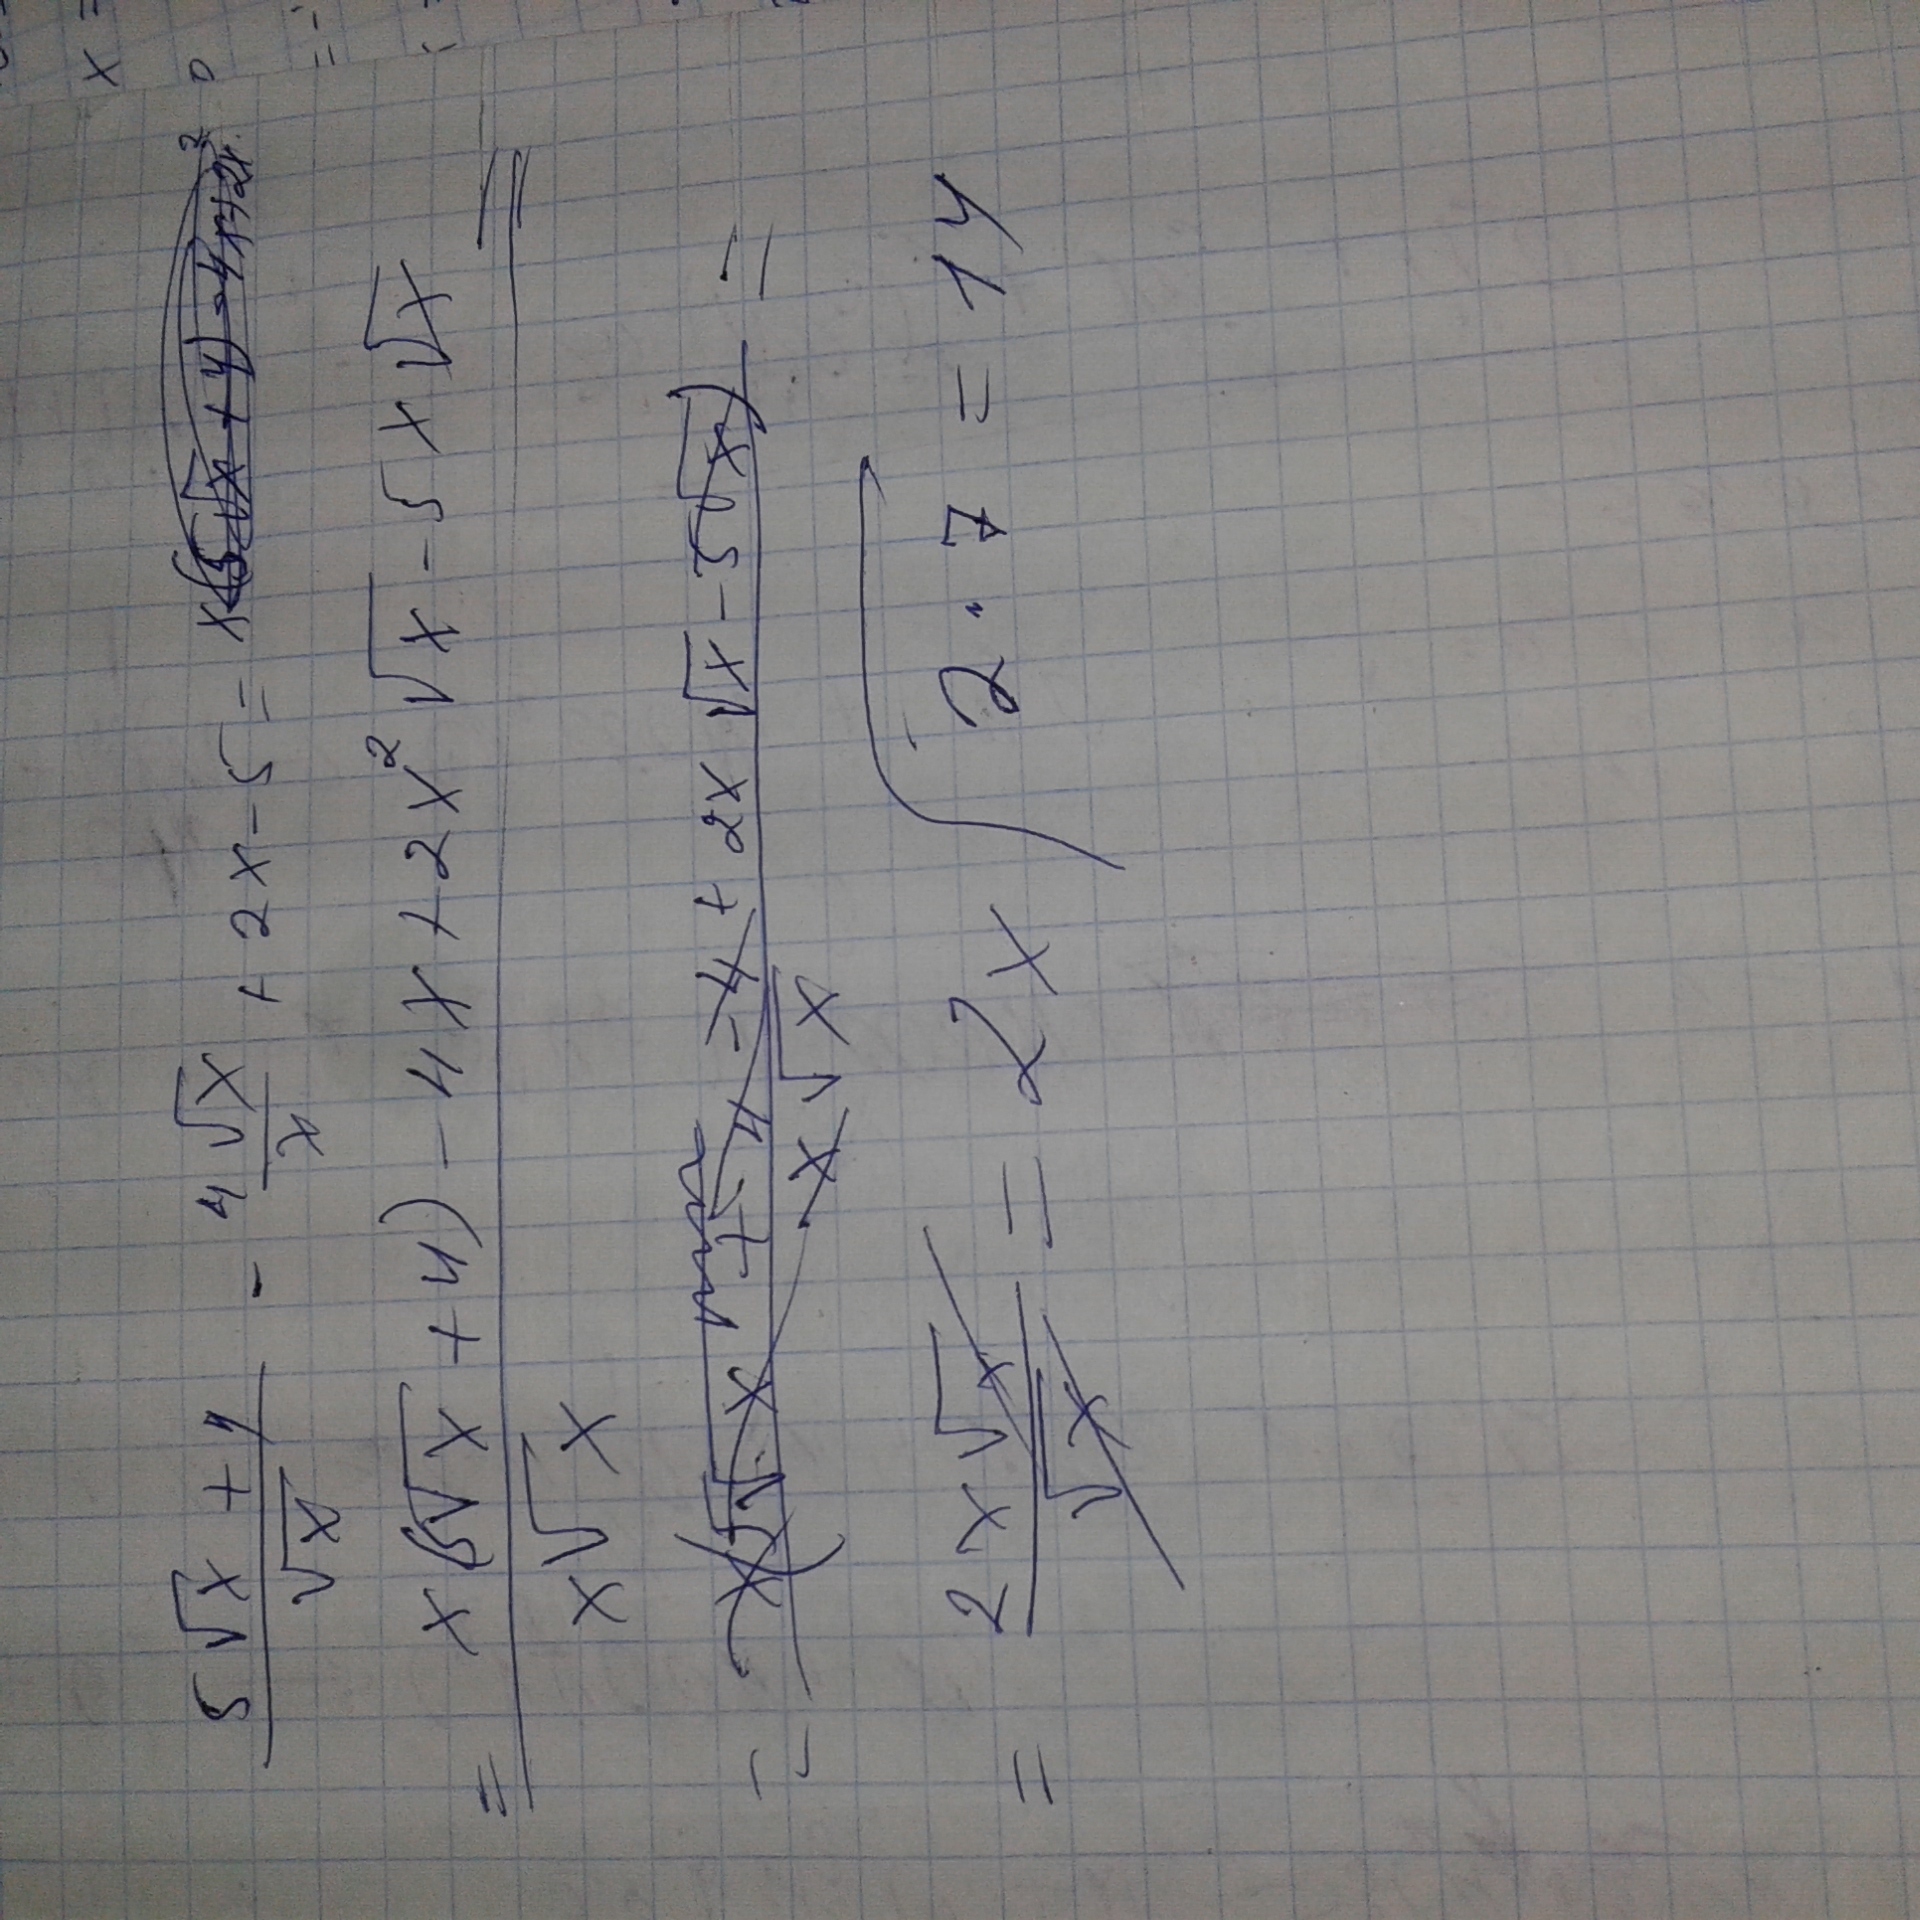 (5√x + 4)/√x - 4√x/x + 2x - 5 =
= (x(5√x + 4) - 4x + 2x²√x - 5x√x)/(x√x) =
= x(5√x + 4 - 4 + 2x√x - 5√x)/(x√x) =
= 2x√x/√x = 2x 2·7 = 14